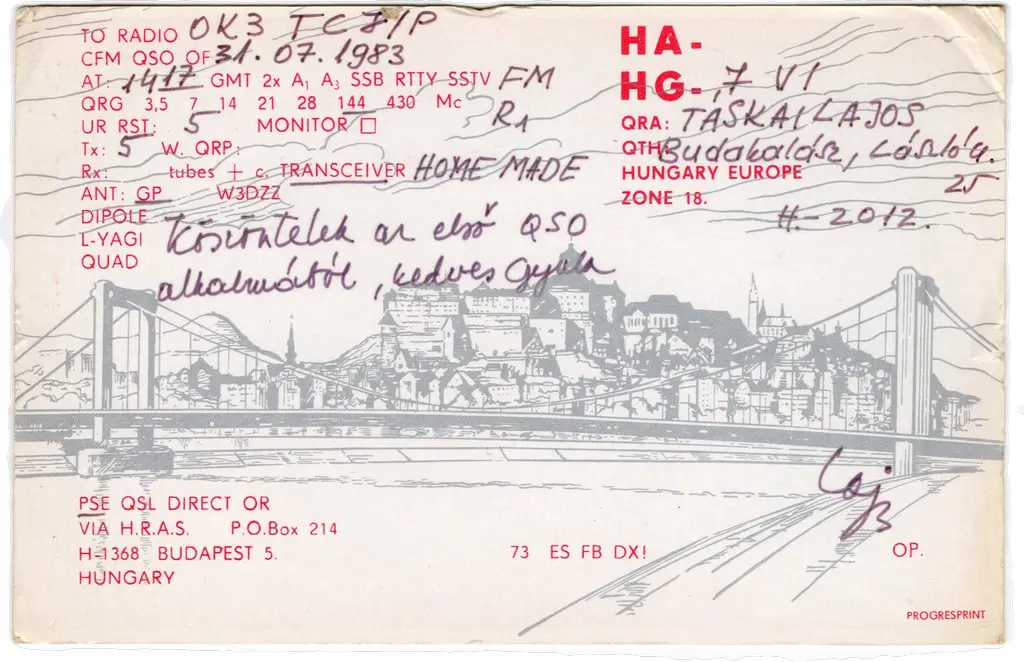 TO RADIO OK3 TCJ/P
CFM QSO OF 31.07.1983
AT: 1417 GMT 2x A₁ A₃ SSB RTTY SSTV FM
QRG 3,5 7 14 21 28 144 430 Mc R1
UR RST: 5 MONITOR ☐
Tx: 5 W. QRP:
Rx: tubes + c. TRANSCEIVER HOME MADE
ANT: GP W3DZZ
DIPOLE
L-YAGI
QUAD
Köszöntelek az első QSO
alkalmából, kedves Gyula
HA-
HG- 7 VI
QRA: TÁSKAI LAJOS
QTH: Budakalász, László u.
25
HUNGARY EUROPE
ZONE 18.
H-2012.
Laj
PSE QSL DIRECT OR
VIA H.R.A.S. P.O.Box 214
H-1368 BUDAPEST 5.
HUNGARY
73 ES FB DX!
OP.
PROGRESPRINT